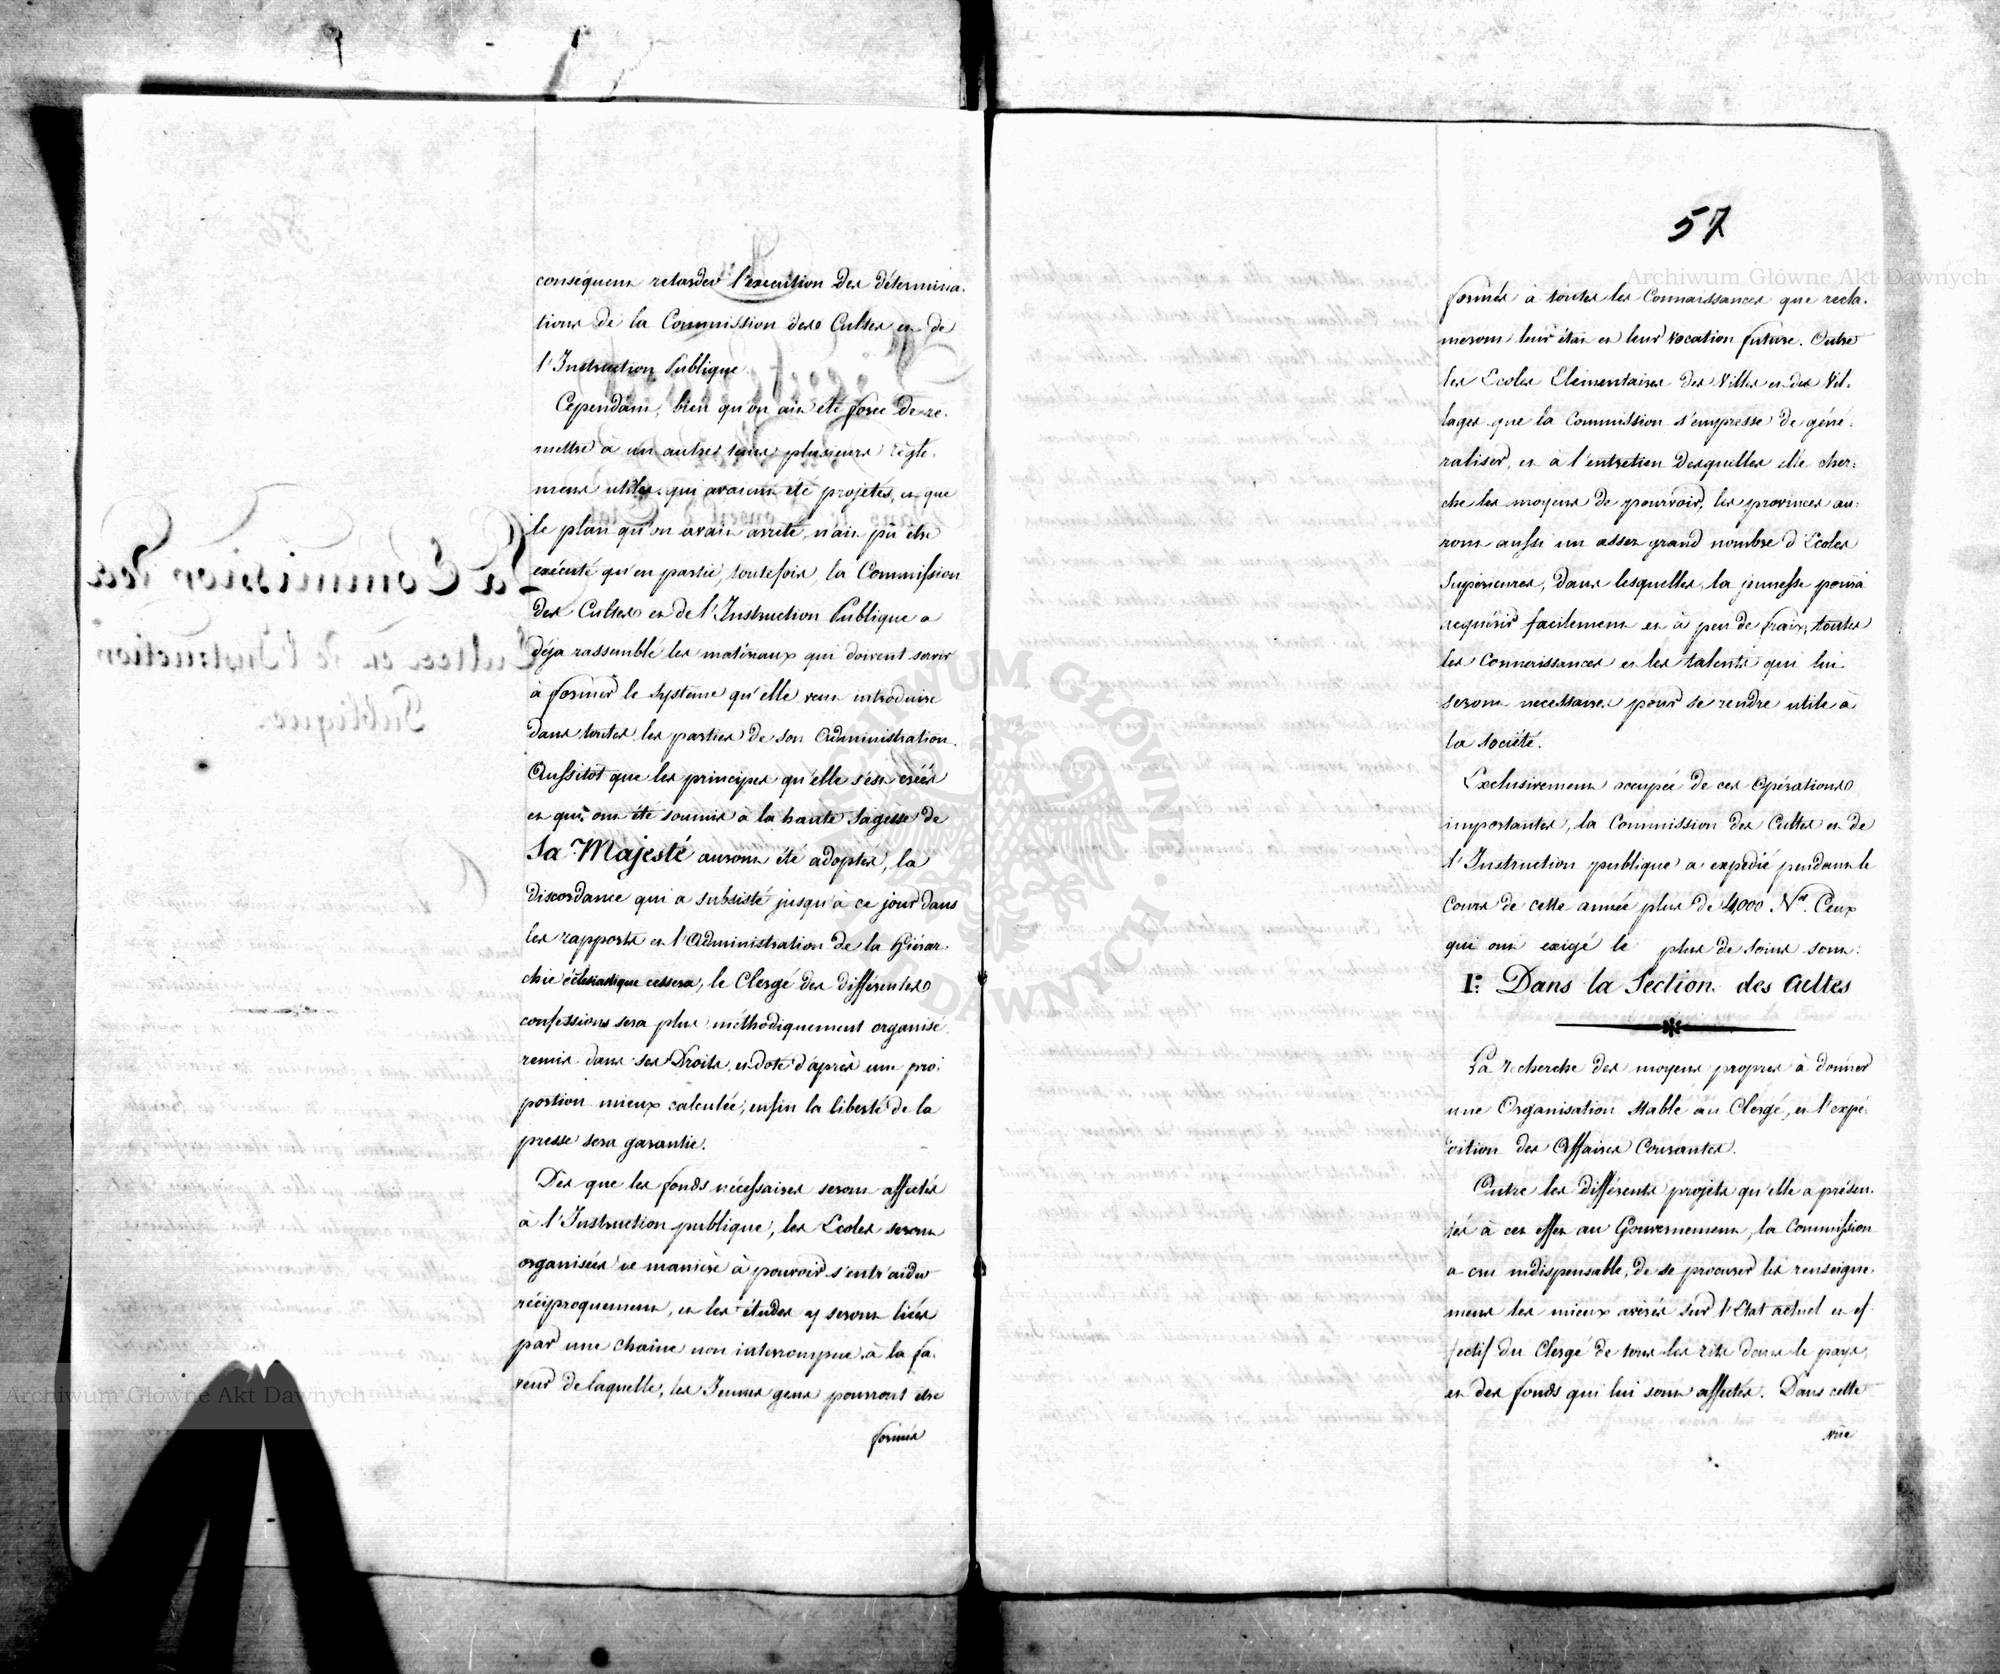 conséquent retarder l'exécution des détermina-
tions de la Commission des Cultes et de
l'Instruction Publique.
Cependant, bien qu'on ait été forcé de re-
mettre à un autre tems plusieurs règle-
mens utiles qui avaient été projetés, et que
le plan qu'on avait arrêté, n'ait pû être
exécuté qu'en partie, toutefois, la Commission
des Cultes et de l'Instruction Publique a
déja rassemblé les matériaux qui doivent servir
à former le systeme qu'elle veut introduire
dans toutes les parties de son Administration.
Aussitôt que les principes qu'elle s'est créés
et qui ont été soumis à la haute Sagesse de
Sa Majesté auront été adoptés, la
discordance qui a subsisté jusqu'à ce jour dans
les rapports et l'Administration de la Hiérar-
chie écclesiastique cessera, le Clergé des différentes
confessions sera plus méthodiquement organisé,
remis dans ses Droits, et doté d'après une pro-
portion mieux calculée; enfin la liberté de la
presse sera garantie.
Dès que les fonds nécessaires seront affectés
à l'Instruction publique, les Ecoles seront
organisées de manière à pouvoir s'entr'aider
réciproquement, et les études y seront liées
par une chaîne non interrompue, à la fa-
veur de laquelle, les Jeunes gens pourront être
formés
57
formés à toutes les Connaissances que récla-
meront leur état et leur vocation future. Outre
les Ecoles Elémentaires des Villes et des Vil-
lages que la Commission s'empresse de géné-
raliser, et à l'entretien desquelles elle cher-
che les moyens de pourvoir, les provinces au-
ront aussi un assez grand nombre d'Ecoles
Supérieures, dans lesquelles, la jeunesse pourra
acquérir facilement et à peu de frais, toutes
les Connaissances et les talents qui lui
seront necessaires pour se rendre utile à
la société.
Exclusivement occupée de ces Opérations
importantes, la Commission des Cultes et de
l'Instruction publique a expédié pendant le
Cours de cette année plus de 4,000 Nos. Ceux
qui ont exigé le plus de soins sont:
I: Dans la Section des Cultes
La recherche des moyens propres à donner
une Organisation stable au Clergé, et l'expé-
dition des Affaires Courantes.
Outre les différents projets qu'elle a présen-
tés à cet effet au Gouvernement, la Commission
a cru indispensable, de se procurer les renseigne-
mens les mieux avérés sur l'Etat actuel et ef-
fectif du Clergé de tous les rits dans le pays,
et des fonds qui lui sont affectés. Dans cette
vüe
Archiwum Główne Akt Dawnych
Archiwum Główne Akt Dawnych
ARCHIWUM GŁÓWNE AKT DAWNYCH